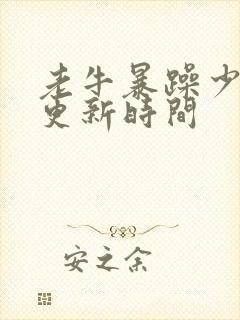 老牛暴躁少
更新時間
安之余